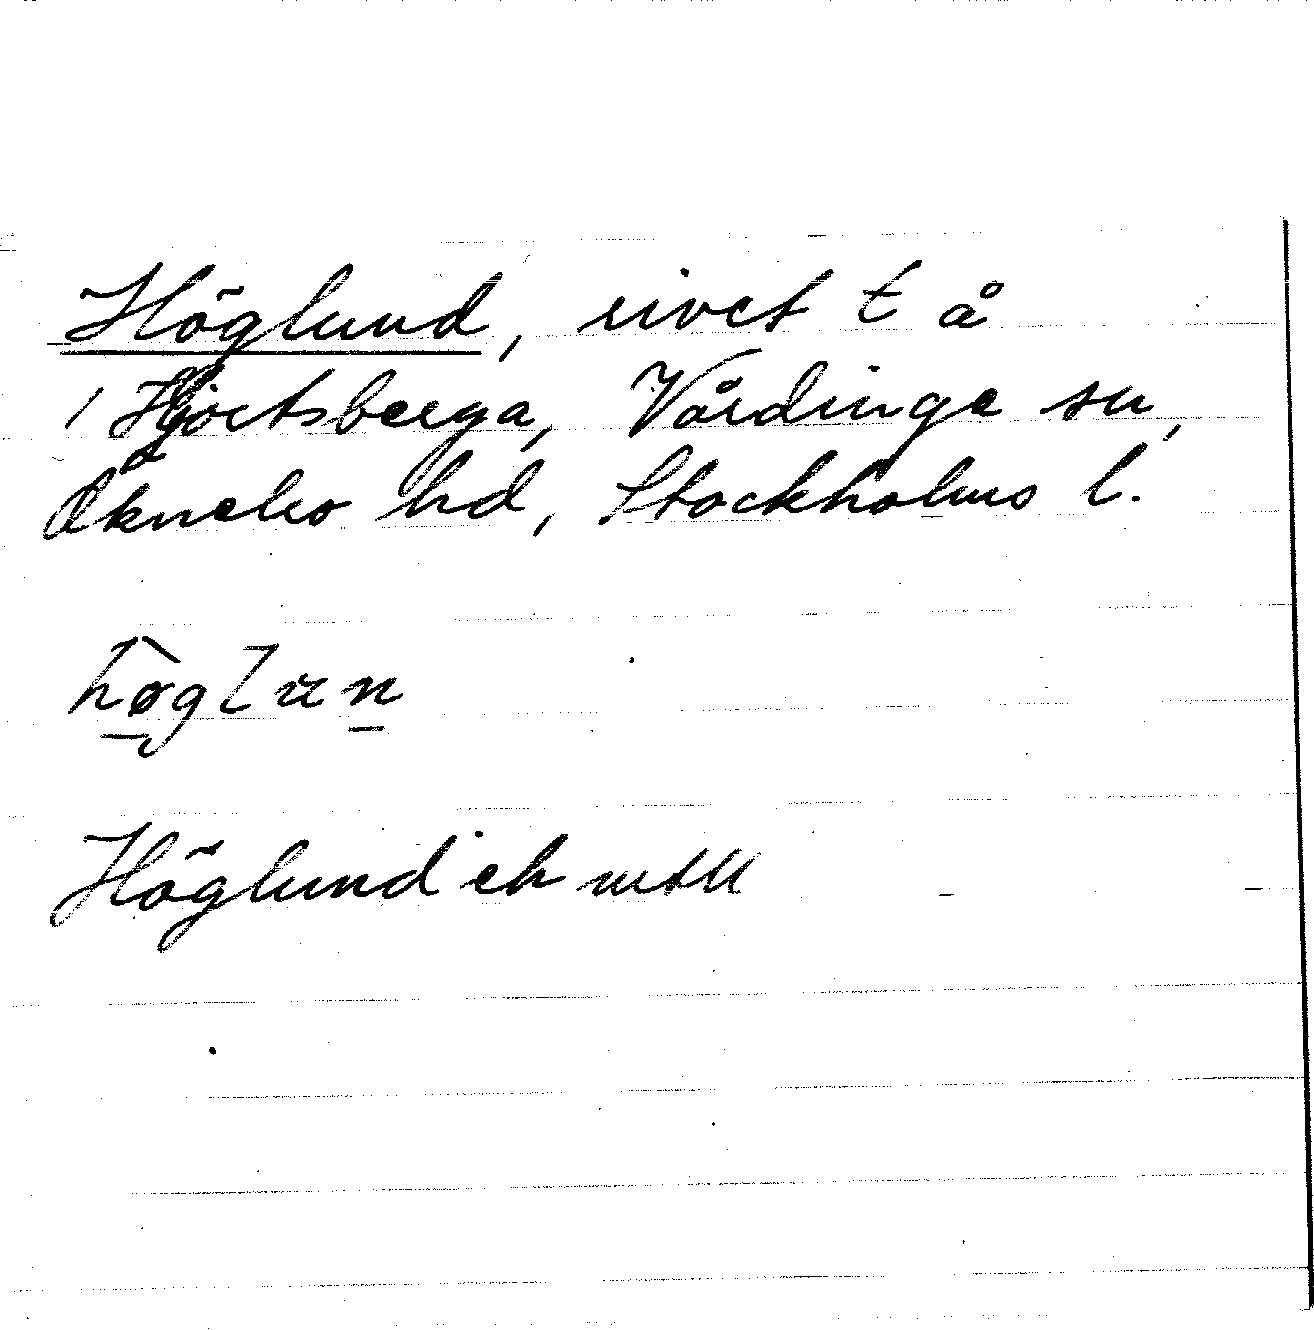 Höglund, rivet t å
1 Hjortsberga, Vårdinge sn,
Öknebo hd, Stockholms l.
høglun
Höglund ek mtl